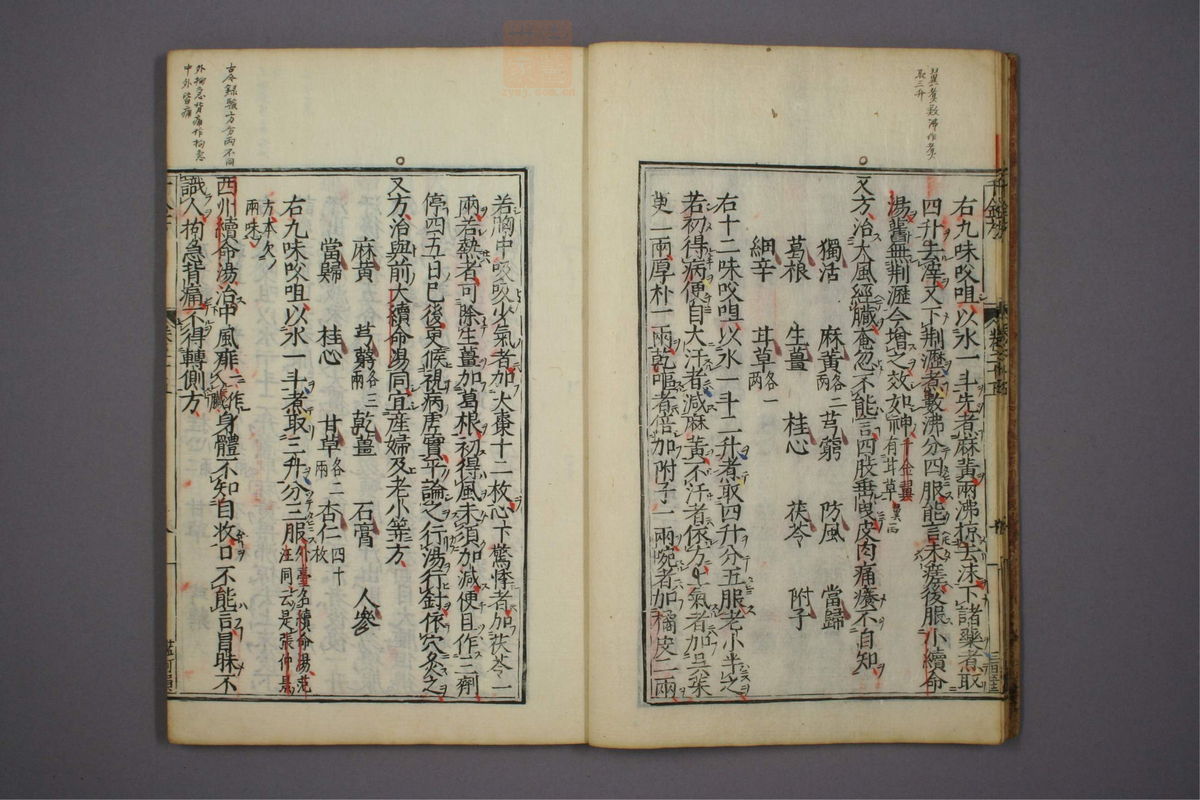 翼煮數沸作煮
取三升
右九味㕮咀以水一斗先煮麻黄兩沸掠去沫下諸藥煮取
四升去滓又下荆瀝煮數沸分四服能言未瘥後服小續命
湯舊無荆瀝今增之效如神千金翼有甘草
又方治大風經臟奄忽不能言四肢垂曳皮肉痛癢不自知
獨活 麻黄各二兩 芎藭 防風 當歸
葛根 生薑 桂心 茯苓 附子
細辛 甘草各一兩
右十二味㕮咀以水一斗二升煮取四升分五服老小半之
若初得病便自大汗者減麻黄不汗者依方上氣者加吳茱
萸二兩厚朴一兩乾嘔者倍加附子一兩啘者加橘皮二兩
若胸中吸吸少氣者加大棗十二枚心下驚悸者加茯苓一
兩若熱者可除生薑加葛根初得風未須加減便且作三劑
停四五日已後更候視病虛實平論之行湯行針依穴灸之
又方治與前大續命湯同宜産婦及老小等方
麻黄 芎藭各三兩 乾薑 石膏 人參
當歸 桂心 甘草各二兩 杏仁四十枚
右九味㕮咀以水一斗煮取三升分三服外臺名續命湯范汪同云是張仲景
方本欠兩味
西州續命湯治中風痱一作入臟身體不知自收口不能言冒昧不
識人拘急背痛不得轉側方
古今録驗方分兩不同
外拘急背痛作拘急
中外皆痛